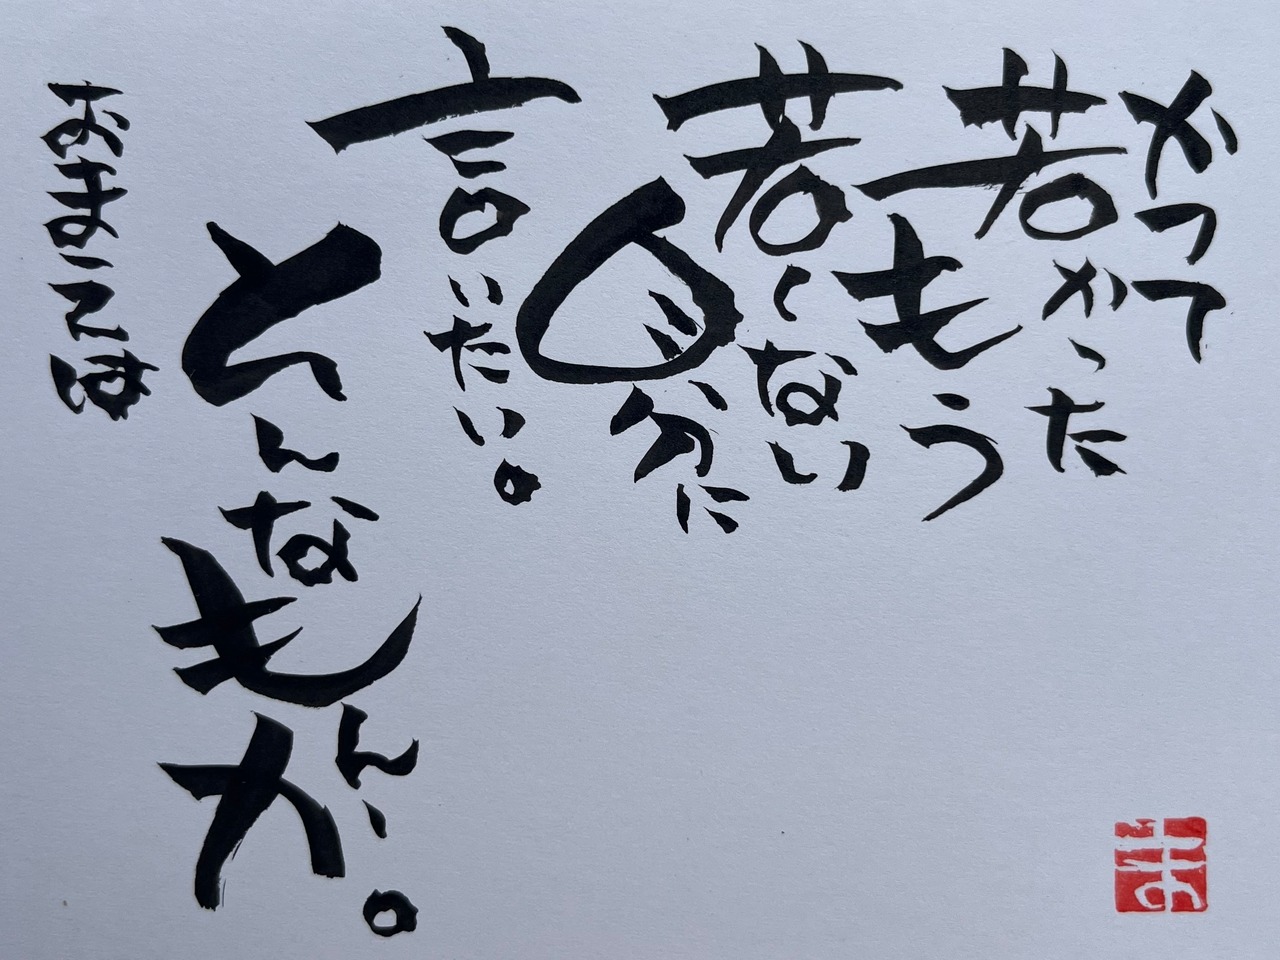 かつて
若かった
もう
若くない
自分に
言いたい。
とんなもんか。